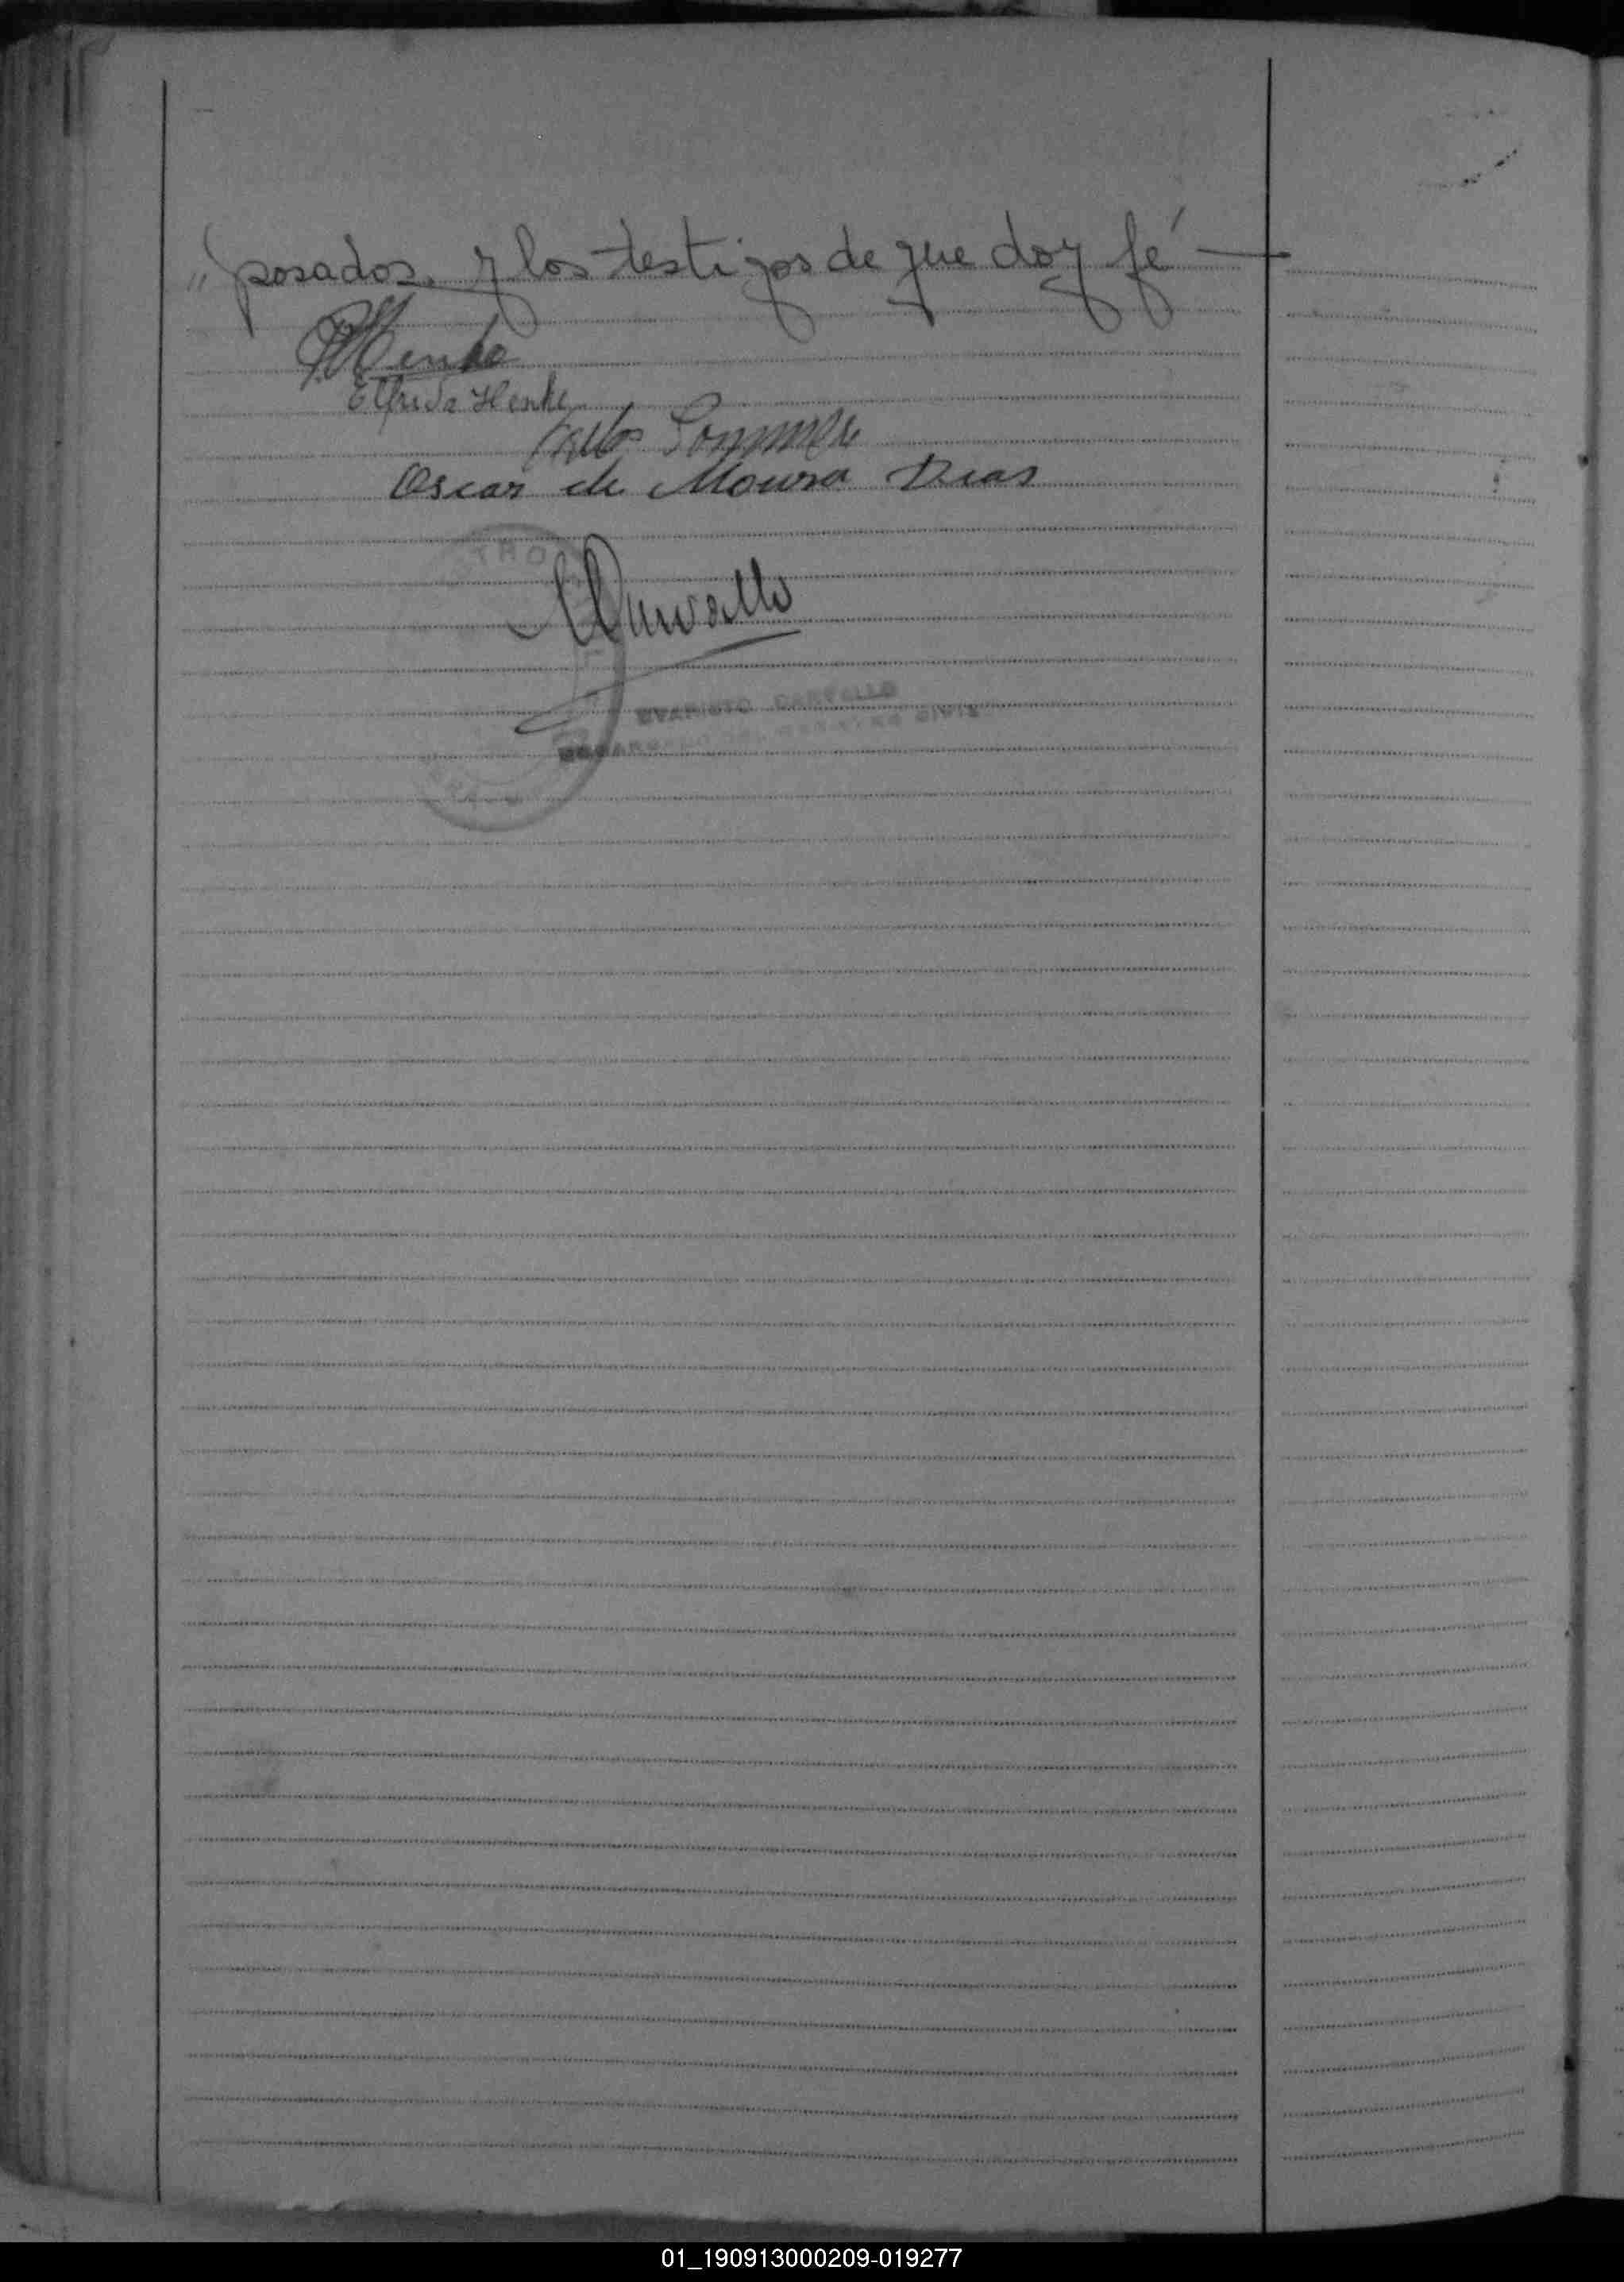 „ posados, y los testigos de que doy fé —
Henke
Elfrida Henke
Carlos Sommer
Oscar de Moura Dias
Carvallo
EVARISTO CARVALLO
ENCARGADO DEL REGISTRO CIVIL
01_190913000209-019277